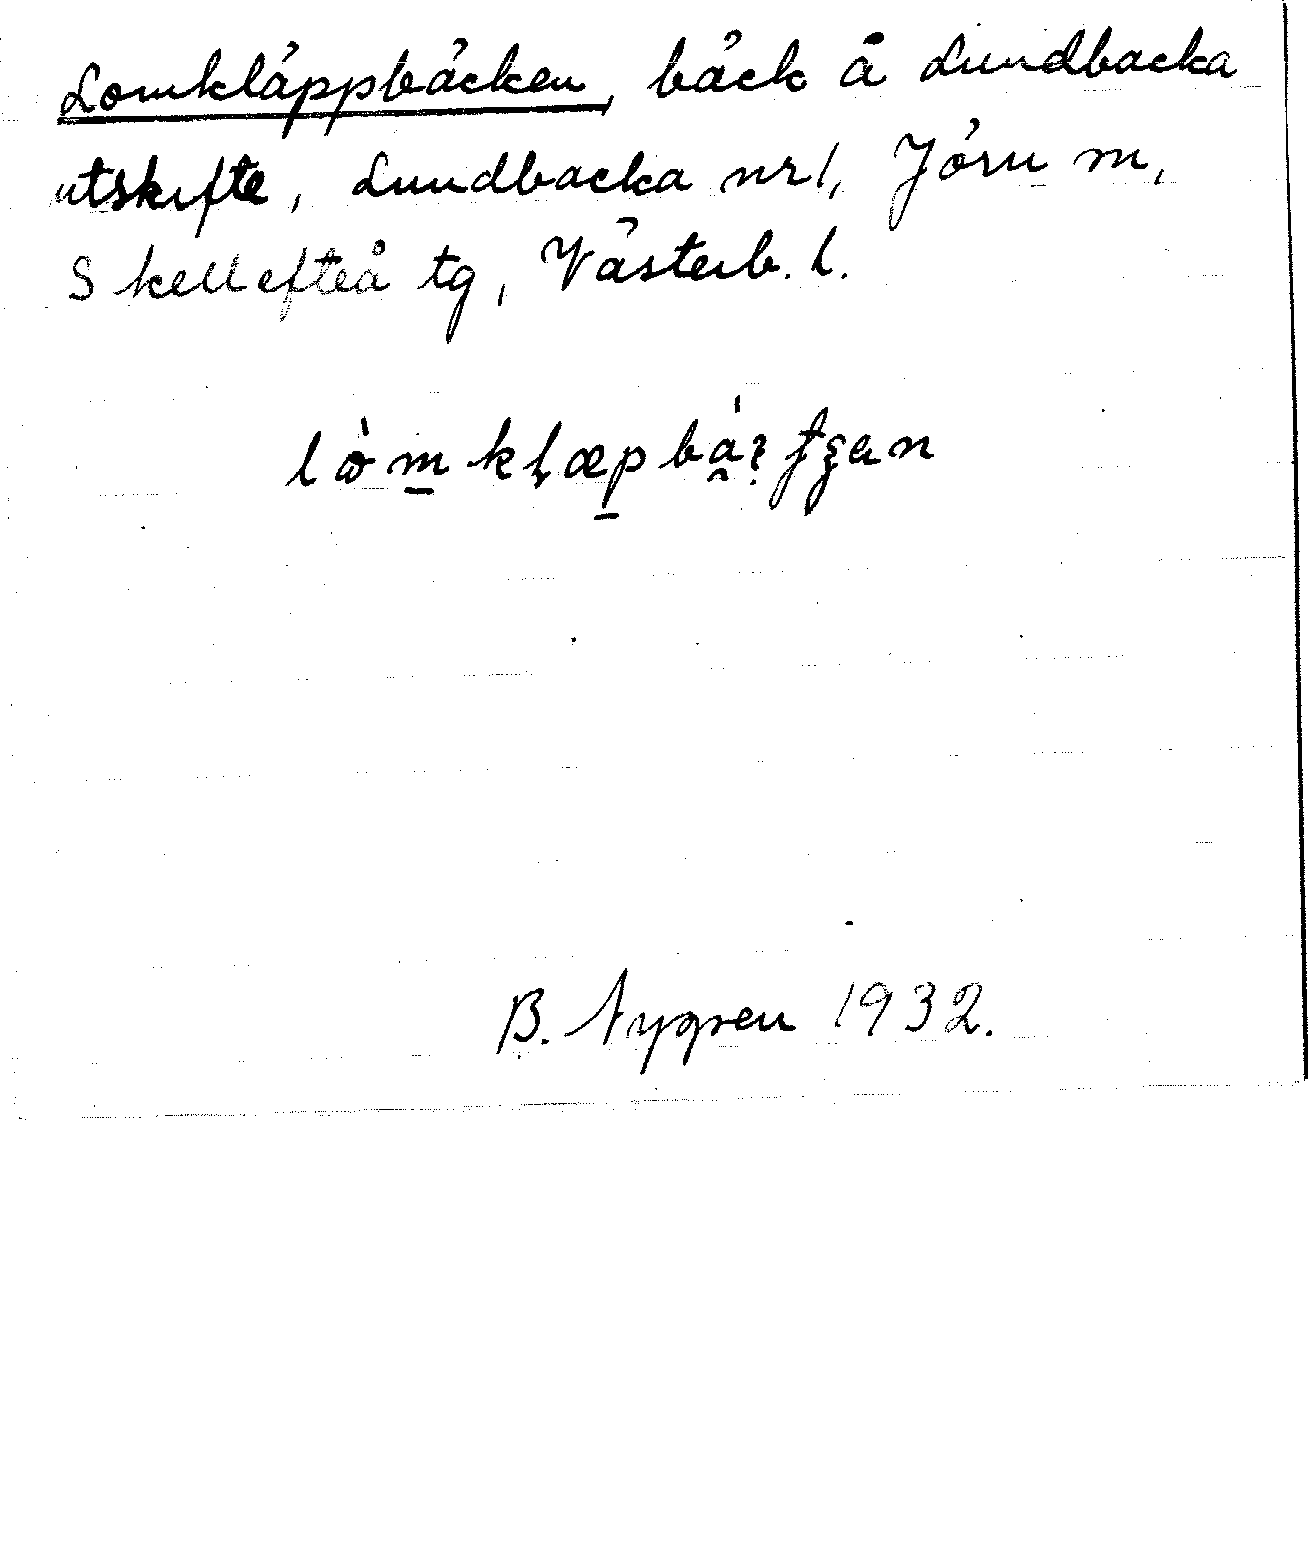 Lomkläppbäcken, bäck å Lundbacka
utskifte, Lundbacka nr 1, Jörn m,
Skellefteå tg, Västerb. l.
B. Nygren 1932.